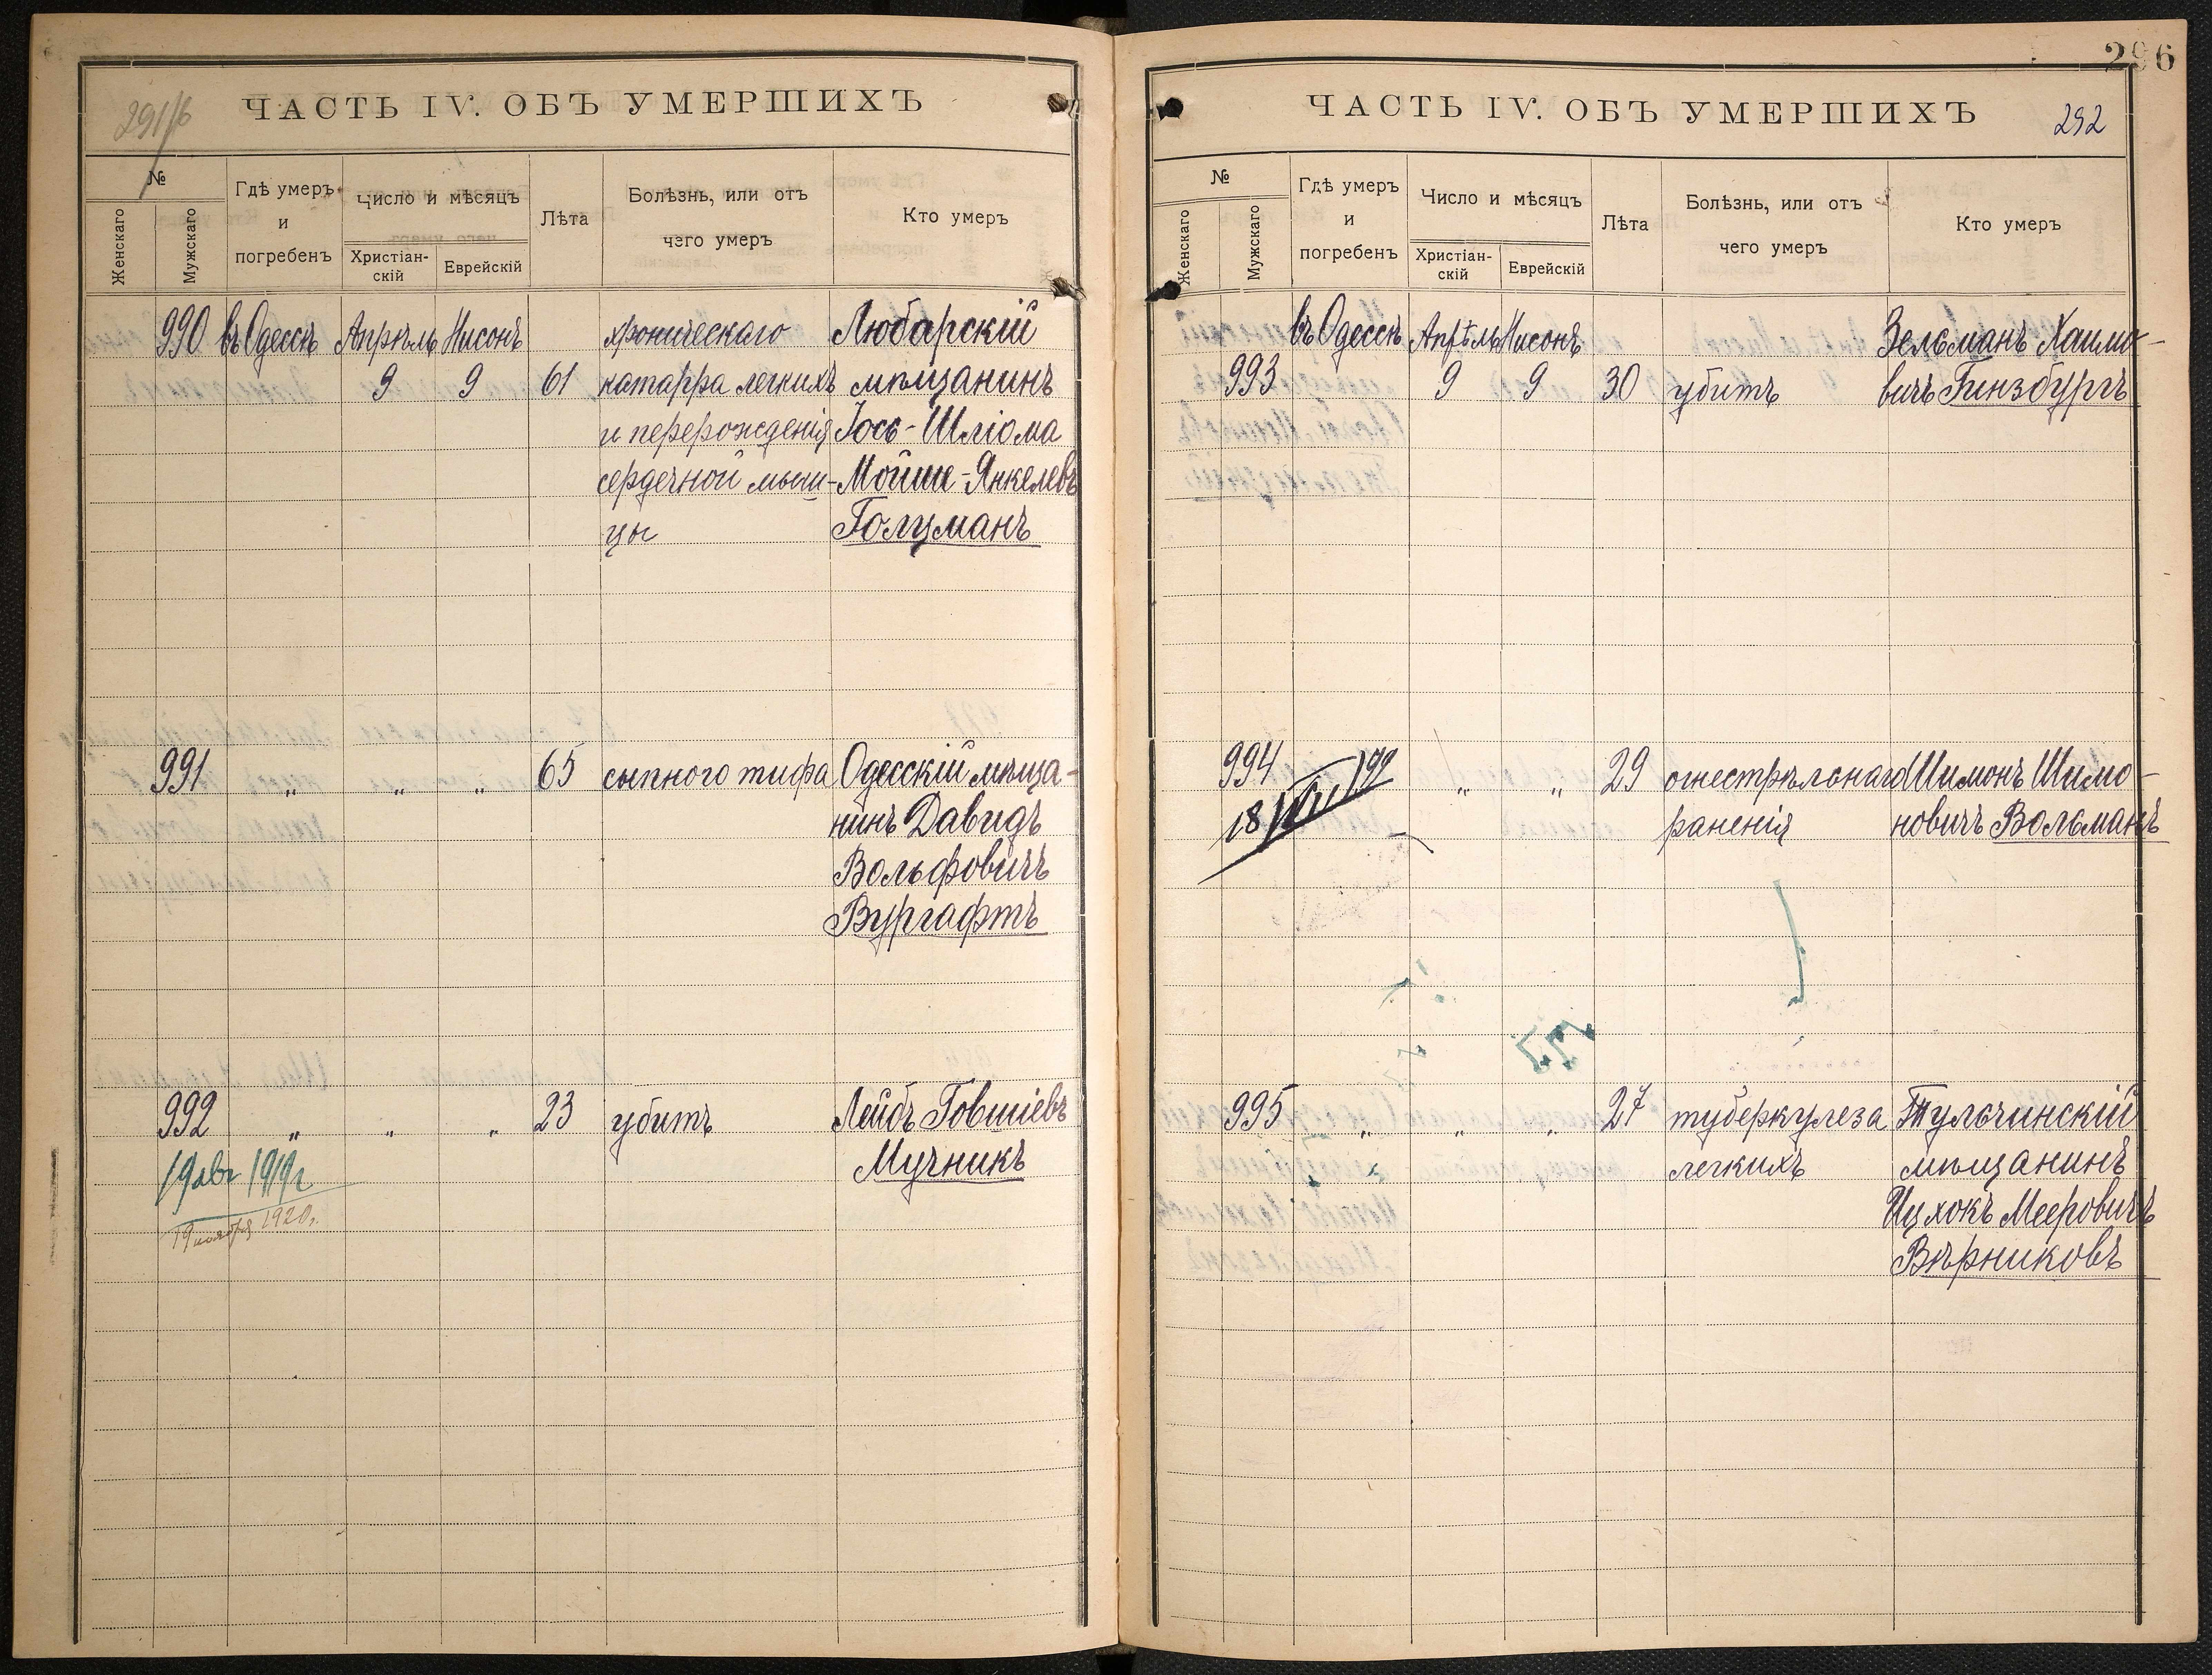 291/б
ЧАСТЬ IV. ОБЪ УМЕРШИХЪ
№
Женскаго
Мужскаго
Гдѣ умеръ
и
погребенъ
Число и мѣсяцъ
Христіан-
скій
Еврейскій
Лѣта
Болѣзнь, или отъ
чего умеръ
Кто умеръ
990 въ Одессѣ Апрѣль Нисонъ хроническаго Любарскій
9 9 61 катарра легкихъ мѣщанинъ
и перерожденія Іось-Шліома
сердечной мыш- Мойше-Янкелевъ
цы Голцманъ
991 „ „ „ 65 сыпного тифа Одесскій мѣща-
нинъ Давидъ
Вольфовичъ
Вургафтъ
992 „ „ „ 23 убитъ Лейбъ Говшіевъ
19 авг 1919 г Мучникъ
19 ноября 1920.
296
ЧАСТЬ IV. ОБЪ УМЕРШИХЪ
292
№
Женскаго
Мужскаго
Гдѣ умеръ
и
погребенъ
Число и мѣсяцъ
Христіан-
скій
Еврейскій
Лѣта
Болѣзнь, или отъ
чего умеръ
Кто умеръ
въ Одессѣ Апрѣль Нисонъ Зельманъ Хаимо-
993 9 9 30 убитъ вичъ Гинзбургъ
994 „ „ 29 огнестрѣльнаго Шимонъ Шимо-
18 раненія новичъ Вольманъ
995 „ „ „ 27 туберкулеза Тульчинскій
легкихъ мѣщанинъ
Ицхокъ Мееровичъ
Вѣрниковъ